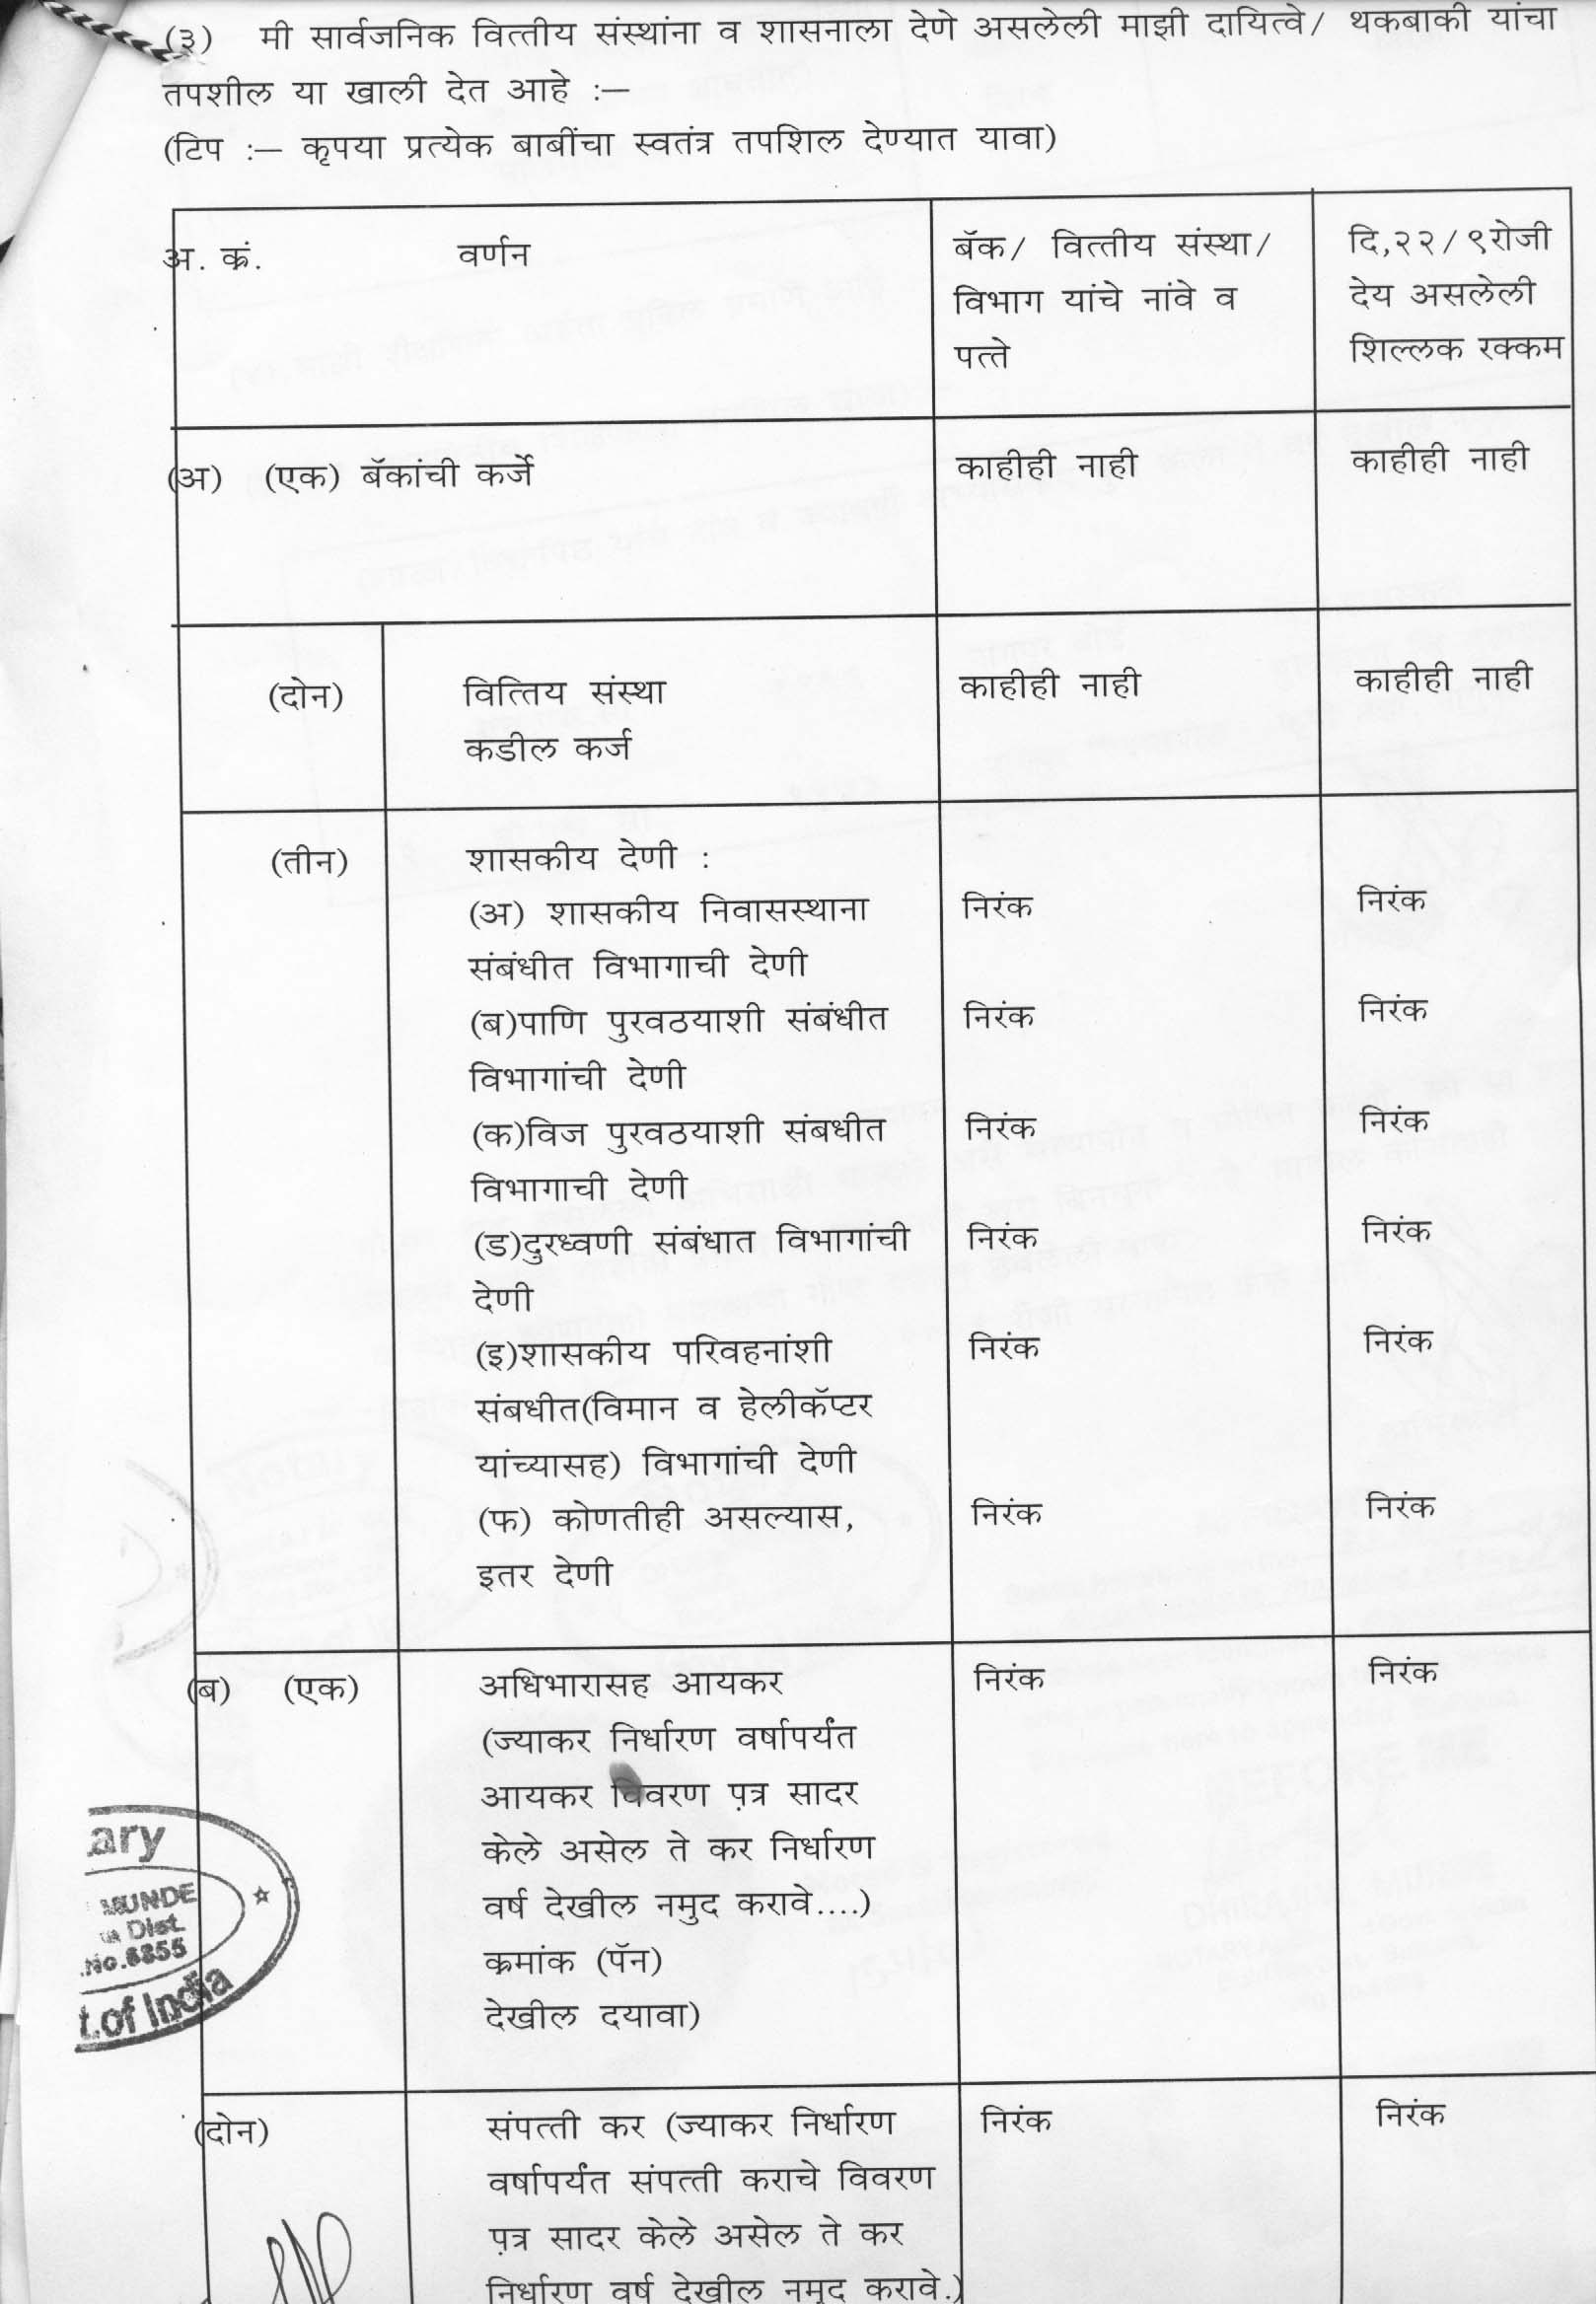 (३) मी सार्वजनिक वित्तीय संस्थांना व शासनाला देणे असलेली माझी दायित्वे/ थकबाकी यांचा
तपशील या खाली देत आहे :—
(टिप :— कृपया प्रत्येक बाबींचा स्वतंत्र तपशिल देण्यात यावा)
अ. क्रं. वर्णन
बॅक/ वित्तीय संस्था/
विभाग यांचे नांवे व
पत्ते
दि,२२/९रोजी
देय असलेली
शिल्लक रक्कम
(अ) (एक) बॅकांची कर्जे काहीही नाही काहीही नाही
(दोन) वित्तिय संस्था काहीही नाही काहीही नाही
कडील कर्ज
(तीन) शासकीय देणी :
(अ) शासकीय निवासस्थाना निरंक निरंक
संबंधीत विभागाची देणी
(ब)पाणि पुरवठयाशी संबंधीत निरंक निरंक
विभागांची देणी
(क)विज पुरवठयाशी संबधीत निरंक निरंक
विभागाची देणी
(ड)दुरध्वणी संबंधात विभागांची निरंक निरंक
देणी
(इ)शासकीय परिवहनांशी निरंक निरंक
संबधीत(विमान व हेलीकॅप्टर
यांच्यासह) विभागांची देणी
(फ) कोणतीही असल्यास, निरंक निरंक
इतर देणी
(ब) (एक) अधिभारासह आयकर निरंक निरंक
(ज्याकर निर्धारण वर्षापर्यंत
आयकर विवरण प़त्र सादर
केले असेल ते कर निर्धारण
वर्ष देखील नमुद करावे....)
क्रमांक (पॅन)
देखील दयावा)
ary
MUNDE
Dist.
.No.6855
t.of India
(दोन) संपत्ती कर (ज्याकर निर्धारण निरंक निरंक
वर्षापर्यंत संपत्ती कराचे विवरण
प़त्र सादर केले असेल ते कर
निर्धारण वर्ष देखील नमूद करावे.)